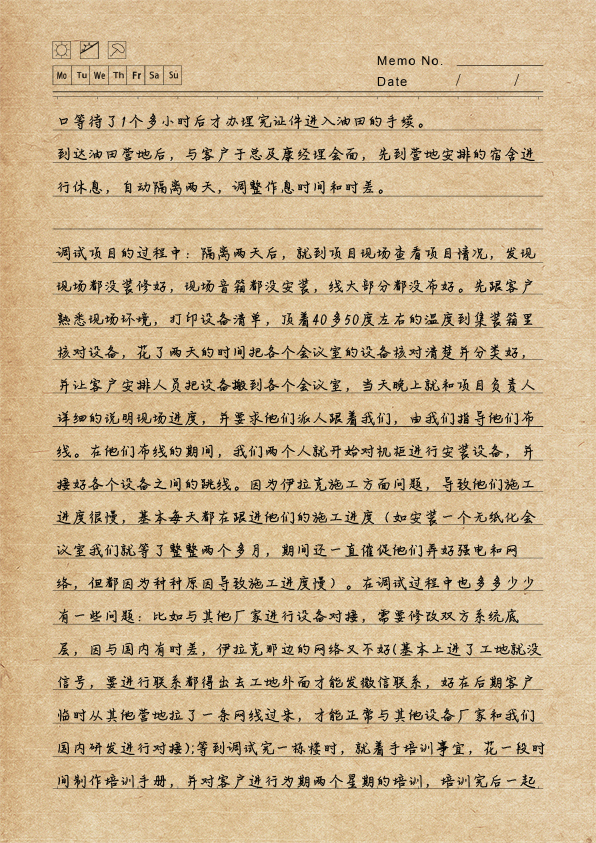 Memo No.
Mo Tu We Th Fr Sa Su
Date / /
口等待了1个多小时后才办理完证件进入油田的手续。
到达油田营地后，与客户于总及康经理会面，先到营地安排的宿舍进
行休息，自动隔离两天，调整作息时间和时差。
调试项目的过程中：隔离两天后，就到项目现场查看项目情况，发现
现场都没装修好，现场音箱都没安装，线大部分都没布好。先跟客户
熟悉现场环境，打印设备清单，顶着40多50度左右的温度到集装箱里
核对设备，花了两天的时间把各个会议室的设备核对清楚并分类好，
并让客户安排人员把设备搬到各个会议室，当天晚上就和项目负责人
详细的说明现场进度，并要求他们派人跟着我们，由我们指导他们布
线。在他们布线的期间，我们两个人就开始对机柜进行安装设备，并
接好各个设备之间的跳线。因为伊拉克施工方面问题，导致他们施工
进度很慢，基本每天都在跟进他们的施工进度（如安装一个无纸化会
议室我们就等了整整两个多月，期间还一直催促他们弄好强电和网
络，但都因为种种原因导致施工进度慢）。在调试过程中也多多少少
有一些问题：比如与其他厂家进行设备对接，需要修改双方系统底
层，因与国内有时差，伊拉克那边的网络又不好(基本上进了工地就没
信号，要进行联系都得出去工地外面才能发微信联系，好在后期客户
临时从其他营地拉了一条网线过来，才能正常与其他设备厂家和我们
国内研发进行对接);等到调试完一栋楼时，就着手培训事宜，花一段时
间制作培训手册，并对客户进行为期两个星期的培训，培训完后一起